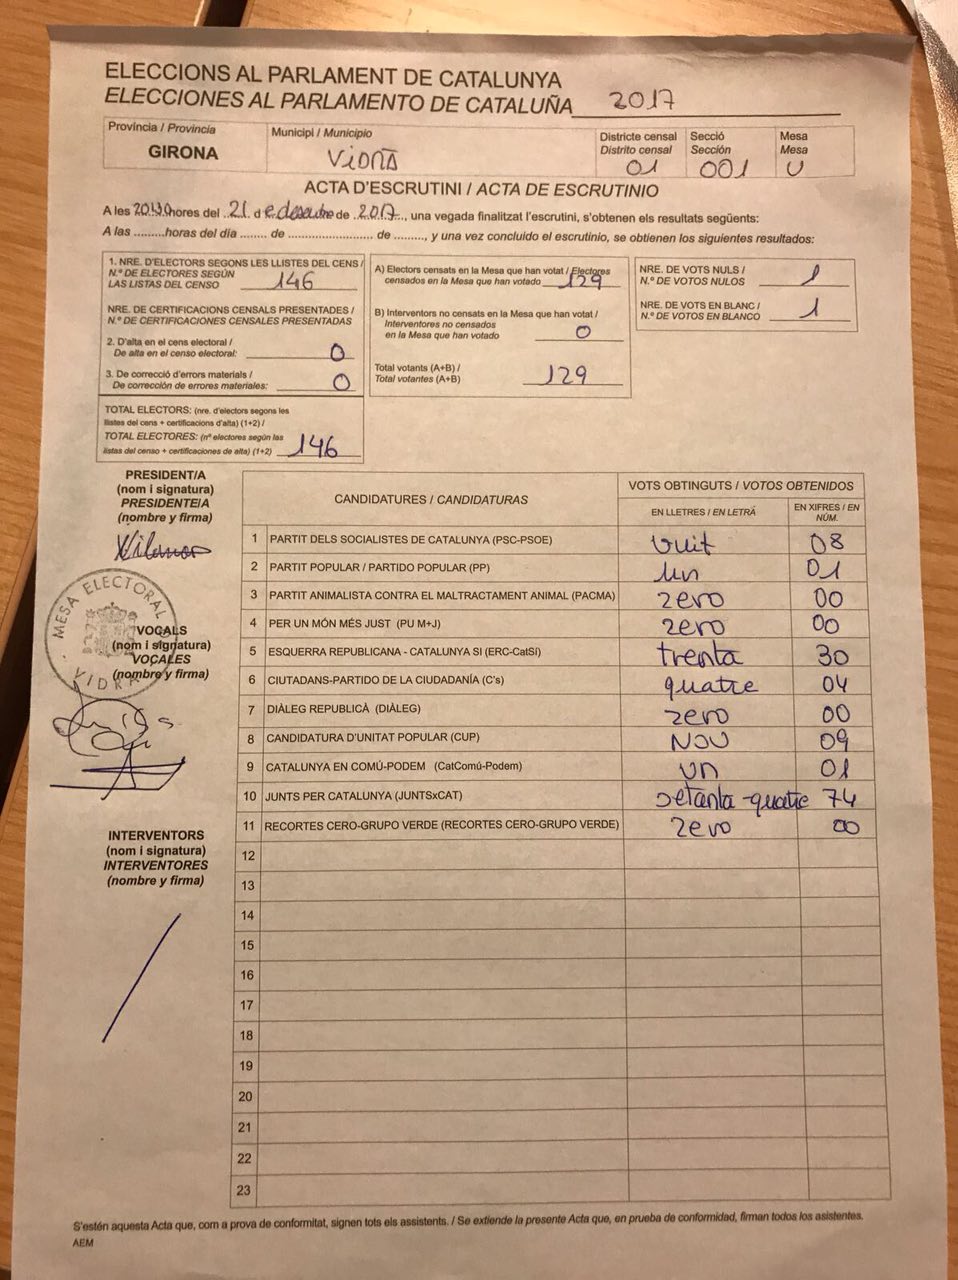 ELECCIONS AL PARLAMENT DE CATALUNYA
ELECCIONES AL PARLAMENTO DE CATALUÑA 2017
Província / Provincia
GIRONA
Municipi / Municipio
VIDRÀ
Districte censal
Distrito censal
01
Secció
Sección
001
Mesa
Mesa
U
ACTA D'ESCRUTINI / ACTA DE ESCRUTINIO
A les hores del 21 de desembre de 2017, una vegada finalitzat l'escrutini, s'obtenen els resultats següents:
A las .........horas del día ........ de ......................... de ........., y una vez concluido el escrutinio, se obtienen los siguientes resultados:
1. NRE. D'ELECTORS SEGONS LES LLISTES DEL CENS /
N.º DE ELECTORES SEGÚN
LAS LISTAS DEL CENSO 146
NRE. DE CERTIFICACIONS CENSALS PRESENTADES /
N.º DE CERTIFICACIONES CENSALES PRESENTADAS
2. D'alta en el cens electoral /
De alta en el censo electoral: 0
3. De correcció d'errors materials /
De corrección de errores materiales: 0
TOTAL ELECTORS: (nre. d'electors segons les
llistes del cens + certificacions d'alta) (1+2) /
TOTAL ELECTORES: (nº electores según las
listas del censo + certificaciones de alta) (1+2) 146
A) Electors censats en la Mesa que han votat / Electores
censados en la Mesa que han votado 129
B) Interventors no censats en la Mesa que han votat /
Interventores no censados
en la Mesa que han votado 0
Total votants (A+B) /
Total votantes (A+B) 129
NRE. DE VOTS NULS /
N.º DE VOTOS NULOS 1
NRE. DE VOTS EN BLANC /
N.º DE VOTOS EN BLANCO 1
PRESIDENT/A
(nom i signatura)
PRESIDENTE/A
(nombre y firma)
MESA ELECTORAL
VIDRÀ
VOCALS
(nom i signatura)
VOCALES
(nombre y firma)
INTERVENTORS
(nom i signatura)
INTERVENTORES
(nombre y firma)
CANDIDATURES / CANDIDATURAS
VOTS OBTINGUTS / VOTOS OBTENIDOS
EN LLETRES / EN LETRA
EN XIFRES / EN
NÚM.
1 PARTIT DELS SOCIALISTES DE CATALUNYA (PSC-PSOE) vuit 08
2 PARTIT POPULAR / PARTIDO POPULAR (PP) un 01
3 PARTIT ANIMALISTA CONTRA EL MALTRACTAMENT ANIMAL (PACMA) zero 00
4 PER UN MÓN MÉS JUST (PU M+J) zero 00
5 ESQUERRA REPUBLICANA - CATALUNYA SI (ERC-CatSí) trenta 30
6 CIUTADANS-PARTIDO DE LA CIUDADANÍA (C's) quatre 04
7 DIÀLEG REPUBLICÀ (DIÀLEG) zero 00
8 CANDIDATURA D'UNITAT POPULAR (CUP) NOU 09
9 CATALUNYA EN COMÚ-PODEM (CatComú-Podem) un 01
10 JUNTS PER CATALUNYA (JUNTSxCAT) setanta-quatre 74
11 RECORTES CERO-GRUPO VERDE (RECORTES CERO-GRUPO VERDE) zero 00
12
13
14
15
16
17
18
19
20
21
22
23
S'estén aquesta Acta que, com a prova de conformitat, signen tots els assistents. / Se extiende la presente Acta que, en prueba de conformidad, firman todos los asistentes.
AEM